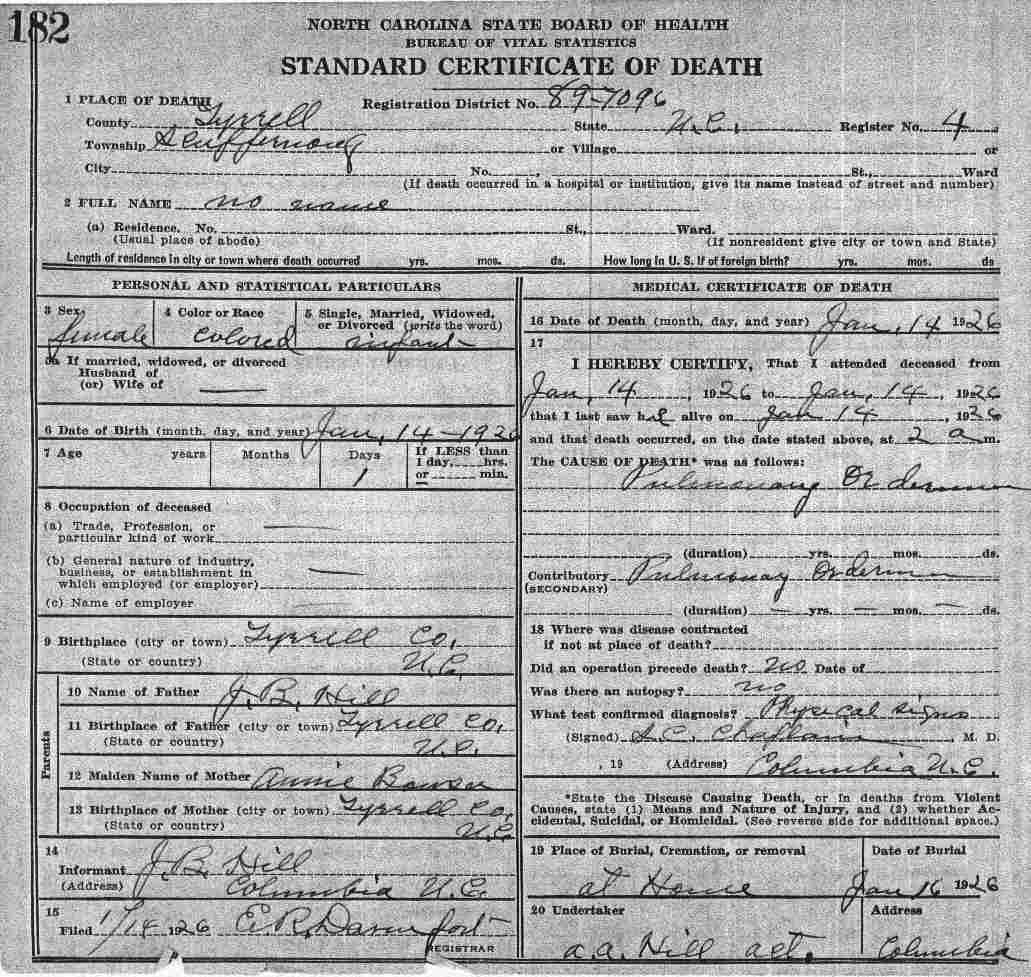 182
NORTH CAROLINA STATE BOARD OF HEALTH
BUREAU OF VITAL STATISTICS
STANDARD CERTIFICATE OF DEATH
1 PLACE OF DEATH Registration District No. 89-7096
County Tyrrell State N.C. Register No. 4
Township Scuppernong or Village or
City No. , St., Ward
(If death occurred in a hospital or institution, give its name instead of street and number)
2 FULL NAME no name
(a) Residence. No. St., Ward.
(Usual place of abode) (If nonresident give city or town and State)
Length of residence in city or town where death occurred yrs. mos. ds. How long in U. S. if of foreign birth? yrs. mos. ds
PERSONAL AND STATISTICAL PARTICULARS
3 Sex 4 Color or Race 5 Single, Married, Widowed,
or Divorced (write the word)
female Colored infant
5a If married, widowed, or divorced
Husband of
(or) Wife of
6 Date of Birth (month, day, and year) Jan, 14-1926
7 Age years Months Days If LESS than
1 1 day, hrs.
or min.
8 Occupation of deceased
(a) Trade, Profession, or
particular kind of work
(b) General nature of industry,
business, or establishment in
which employed (or employer)
(c) Name of employer
9 Birthplace (city or town) Tyrrell Co,
(State or country) N.C.
Parents
10 Name of Father J. B. Hill
11 Birthplace of Father (city or town) Tyrrell Co,
(State or country) N.C.
12 Maiden Name of Mother Annie
13 Birthplace of Mother (city or town) Tyrrell Co,
(State or country) N.C
14
Informant J. B. Hill
(Address) Columbia N.C.
15
Filed 1/14 1926 E. R. Davenport
REGISTRAR
MEDICAL CERTIFICATE OF DEATH
16 Date of Death (month, day, and year) Jan, 14 1926
17
I HEREBY CERTIFY, That I attended deceased from
Jan, 14, 1926 to Jan, 14, 1926
that I last saw h alive on Jan 14, 1926
and that death occurred, on the date stated above, at 2 a m.
The CAUSE OF DEATH* was as follows:
Pulmonary
(duration) yrs. mos. ds.
Contributory Pulmonary
(SECONDARY)
(duration) — yrs. — mos. — ds.
18 Where was disease contracted
if not at place of death?
Did an operation precede death? no Date of
Was there an autopsy? no
What test confirmed diagnosis? Physical signs
(Signed) , M. D.
, 19 (Address) Columbia N.C.
*State the Disease Causing Death, or in deaths from Violent
Causes, state (1) Means and Nature of Injury, and (2) whether Ac-
cidental, Suicidal, or Homicidal. (See reverse side for additional space.)
19 Place of Burial, Cremation, or removal Date of Burial
at Home Jan 16 1926
20 Undertaker Address
a.a. Hill act. Columbia